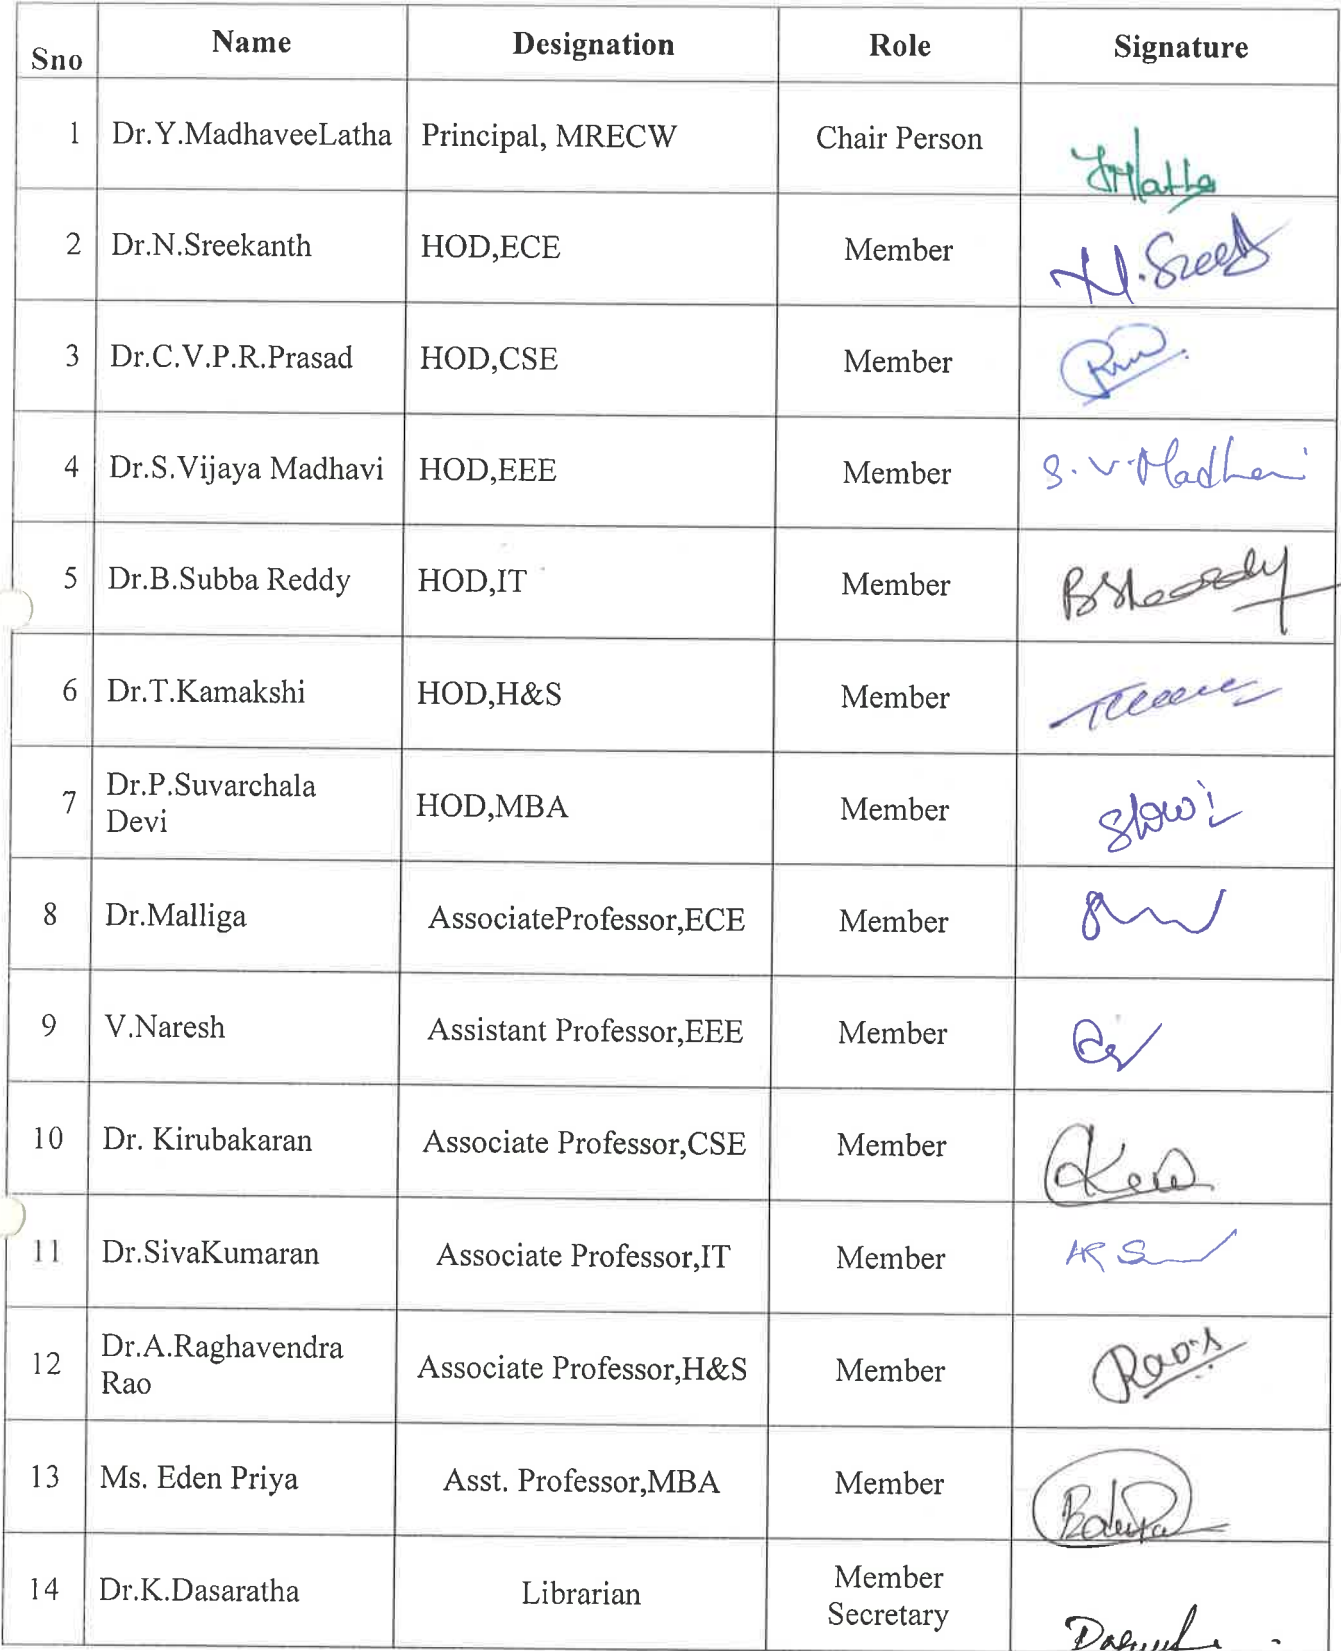 Sno Name Designation Role Signature
1 Dr.Y.MadhaveeLatha Principal, MRECW Chair Person
2 Dr.N.Sreekanth HOD,ECE Member N.Sree
3 Dr.C.V.P.R.Prasad HOD,CSE Member
4 Dr.S.Vijaya Madhavi HOD,EEE Member S.V.Madhavi
5 Dr.B.Subba Reddy HOD,IT Member
6 Dr.T.Kamakshi HOD,H&S Member
7 Dr.P.Suvarchala
Devi HOD,MBA Member
8 Dr.Malliga AssociateProfessor,ECE Member
9 V.Naresh Assistant Professor,EEE Member
10 Dr. Kirubakaran Associate Professor,CSE Member
11 Dr.SivaKumaran Associate Professor,IT Member
12 Dr.A.Raghavendra
Rao Associate Professor,H&S Member
13 Ms. Eden Priya Asst. Professor,MBA Member
14 Dr.K.Dasaratha Librarian Member
Secretary